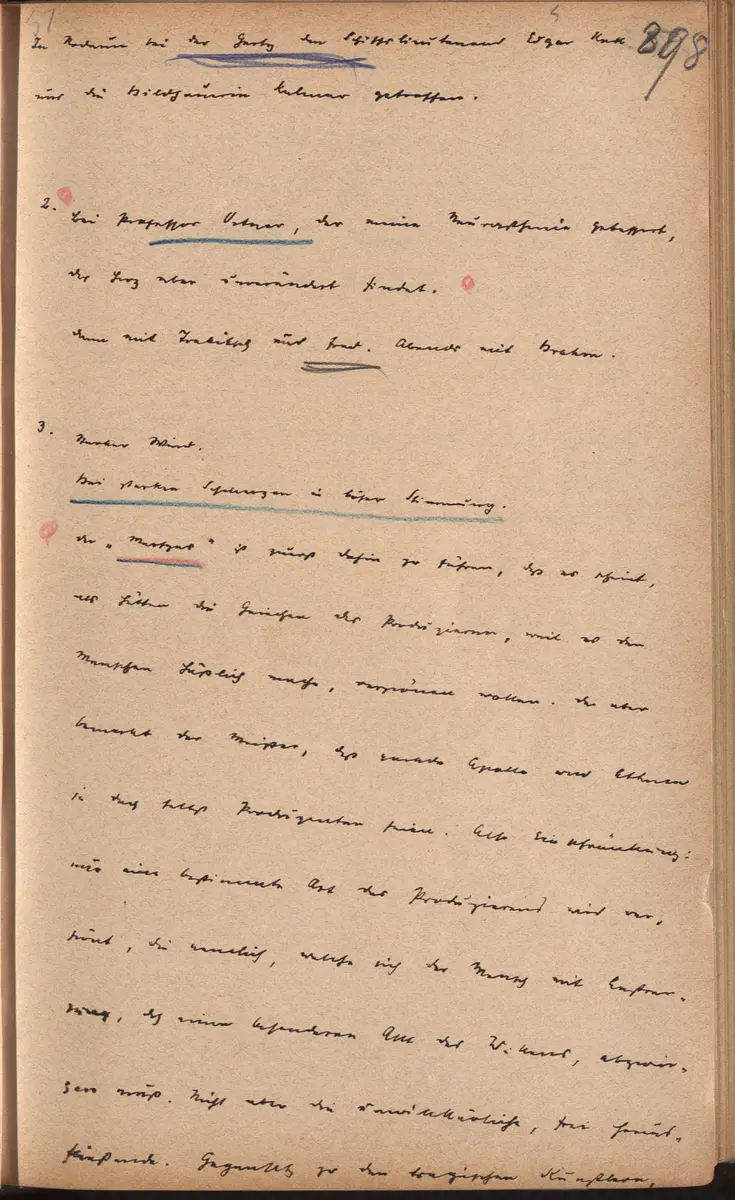 898
In Rodaun bei der Gerty den Schiffslieutenant Edgar
und die Bildhauerin getroffen.
2. bei Professor Ortner, der meine Neurasthenie gebessert,
das Herz aber unverändert findet.
dann mit Trebitsch und Fred. Abends mit Brahm.
3. Starker Wind.
Bei starken Schmerzen in böser Stimmung.
der „Marsyas" ist zuerst dahin zu führen, daß es scheint,
als hätten die Griechen das Produzieren, weil es den
Menschen häßlich mache, verpönen wollen. Da aber
bemerkt der Meister, daß gerade Apollo und Athene
ja doch selbst Produzenten seien. Also Einschränkung:
nur eine bestimmte Art des Produzierens wird ver-
pönt, die nämlich, welche sich der Mensch mit Anstren-
gung, durch einen besonderen Akt des Willens, abzwin-
gen muß. Nicht aber die unwillkürliche, frei heraus-
fließende. Gegensatz zu den tragischen Künstlern,